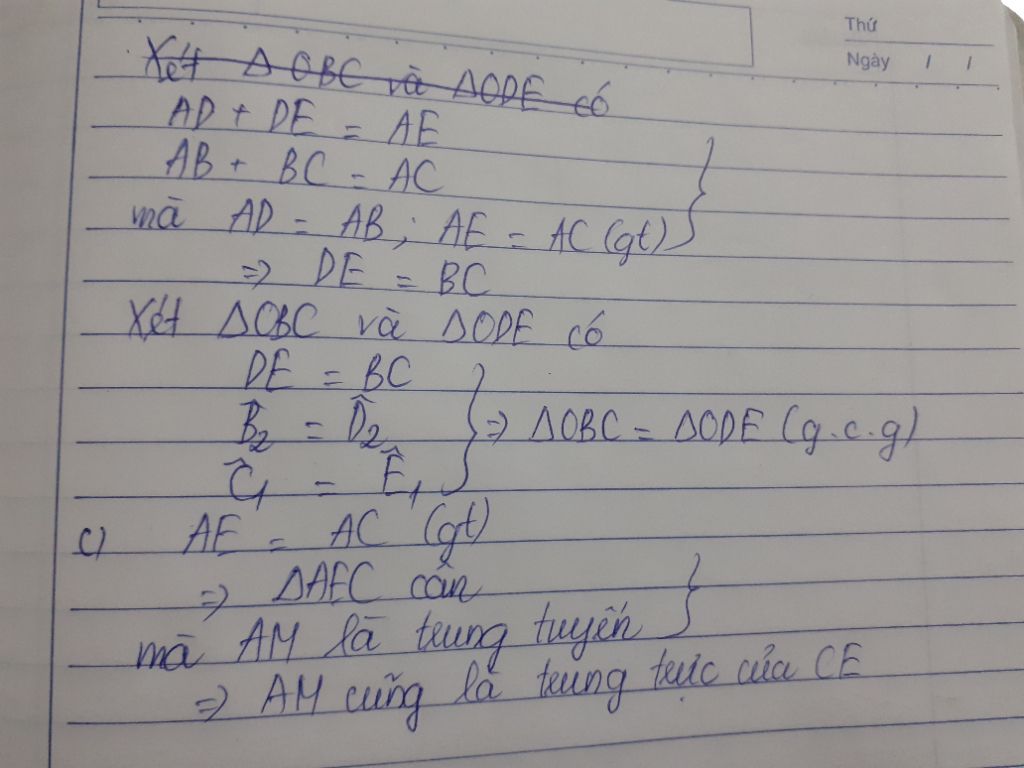 Thứ
Ngày / /
Xét Δ OBC và ΔODE có
AD + DE = AE
AB + BC = AC
mà AD = AB ; AE = AC (gt)
=> DE = BC
Xét ΔOBC và ΔODE có
DE = BC
B̂₂ = D̂₂ => ΔOBC = ΔODE (g.c.g)
Ĉ₁ = Ê₁
c) AE = AC (gt)
=> ΔAEC cân
mà AM là trung tuyến
=> AM cũng là trung trực của CE